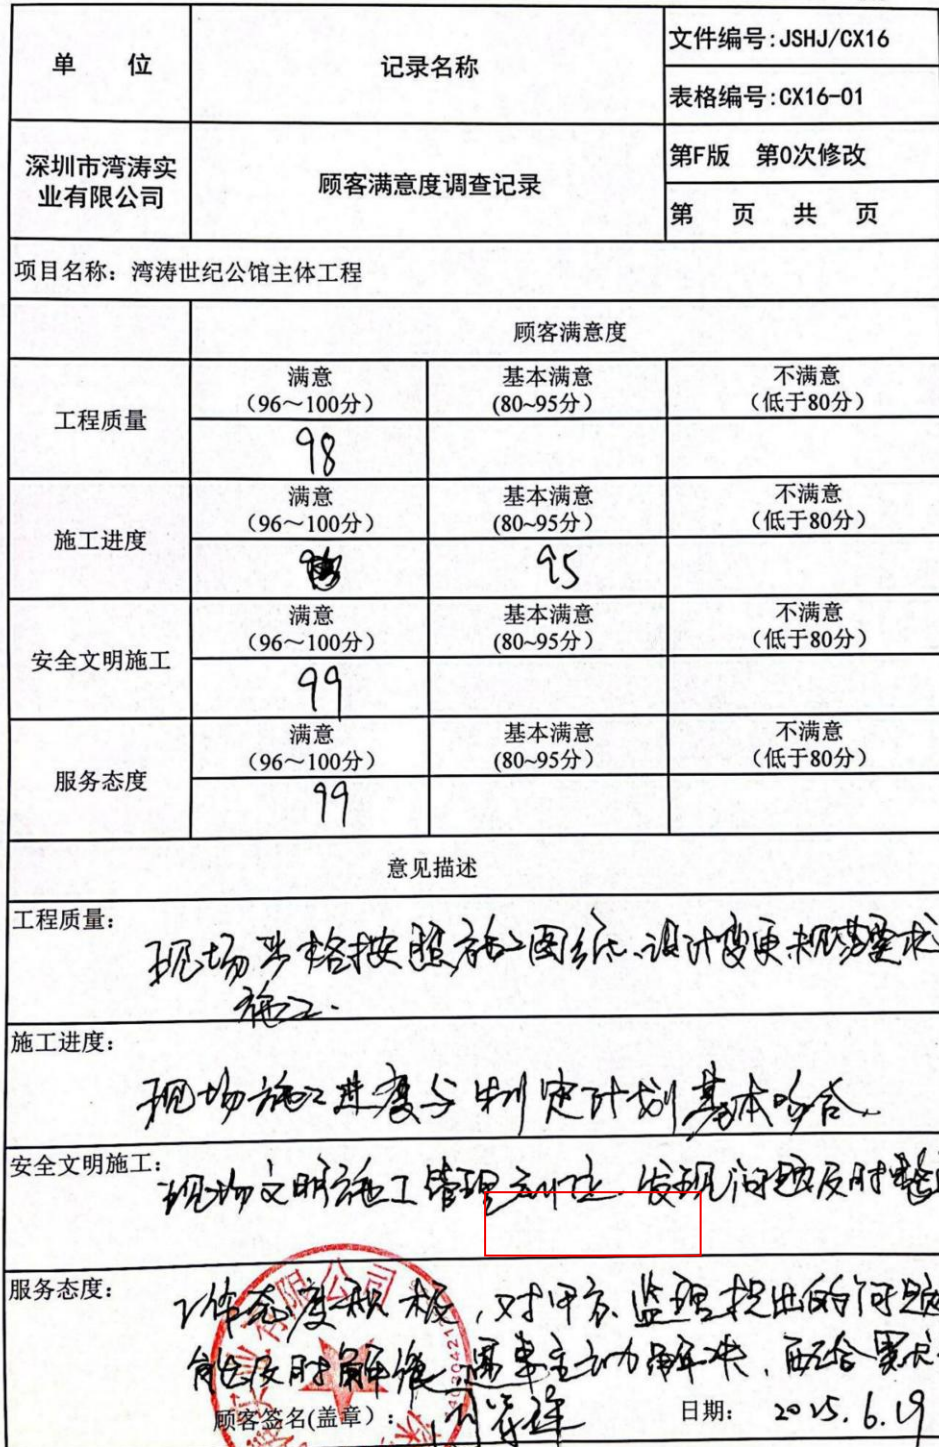 单 位
记录名称
文件编号:JSHJ/CX16
表格编号:CX16-01
深圳市湾涛实
业有限公司
顾客满意度调查记录
第F版 第0次修改
第 页 共 页
项目名称：湾涛世纪公馆主体工程
顾客满意度
工程质量
满意
（96～100分）
基本满意
(80~95分）
不满意
（低于80分）
98
施工进度
满意
（96～100分）
基本满意
(80~95分）
不满意
（低于80分）
95
安全文明施工
满意
（96～100分）
基本满意
(80~95分）
不满意
（低于80分）
99
服务态度
满意
（96～100分）
基本满意
(80~95分）
不满意
（低于80分）
99
意见描述
工程质量：
现场严格按照施工图纸、设计变更规范要求
施工.
施工进度：
现场施工进度与制定计划基本吻合.
安全文明施工：
现场文明施工管理到位、发现问题及时整
服务态度：
工作态度积极，对甲方、监理提出的问题
能及时解决 主动解决、配合
顾客签名(盖章)：
日期： 2025.6.19
有限公司